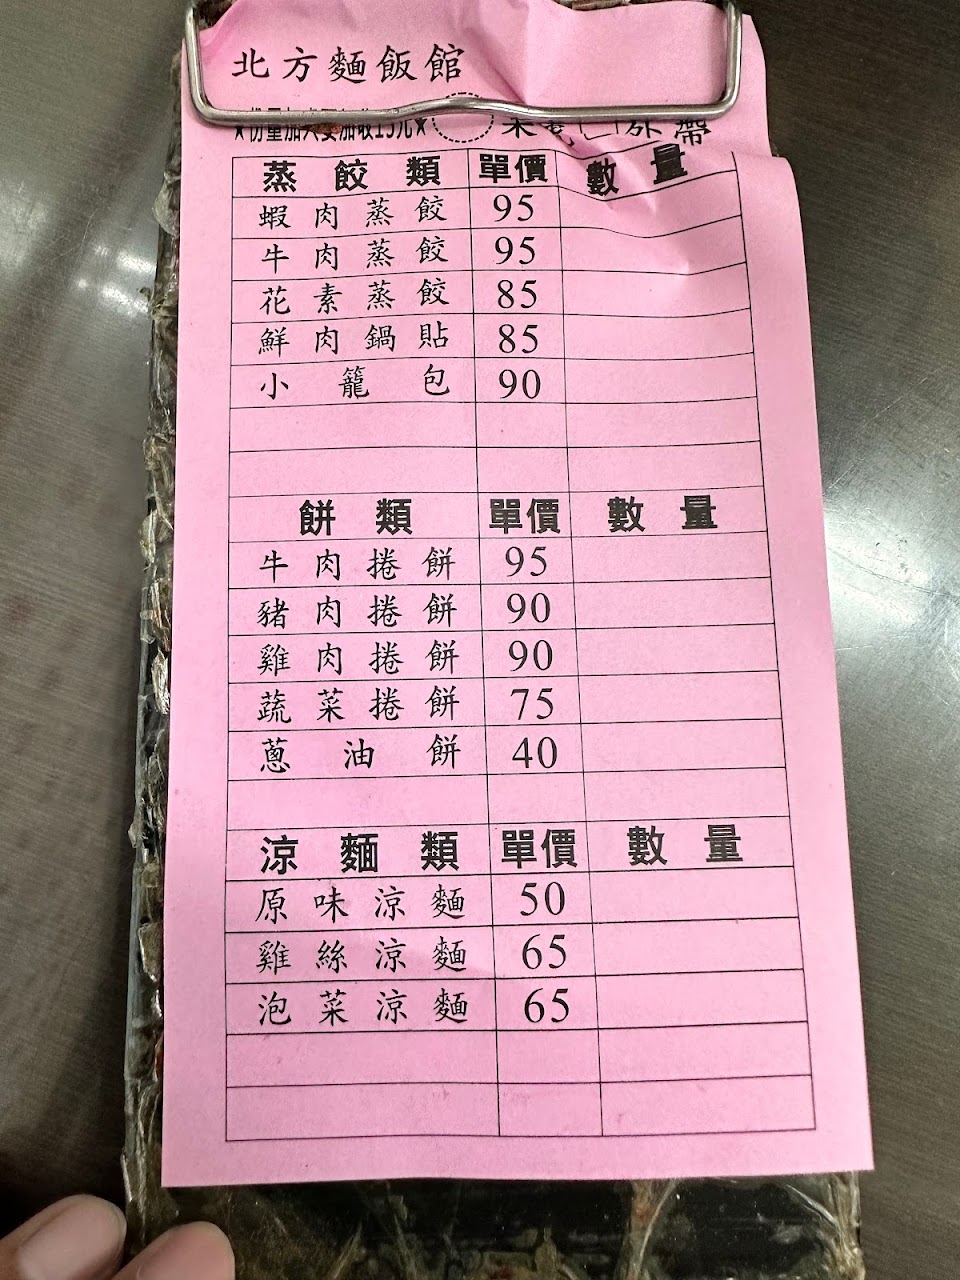 北方麵飯館
★份量加大要加收15元★ 桌號 外帶
蒸餃類 單價 數量
蝦肉蒸餃 95
牛肉蒸餃 95
花素蒸餃 85
鮮肉鍋貼 85
小籠包 90
餅類 單價 數量
牛肉捲餅 95
豬肉捲餅 90
雞肉捲餅 90
蔬菜捲餅 75
蔥油餅 40
涼麵類 單價 數量
原味涼麵 50
雞絲涼麵 65
泡菜涼麵 65